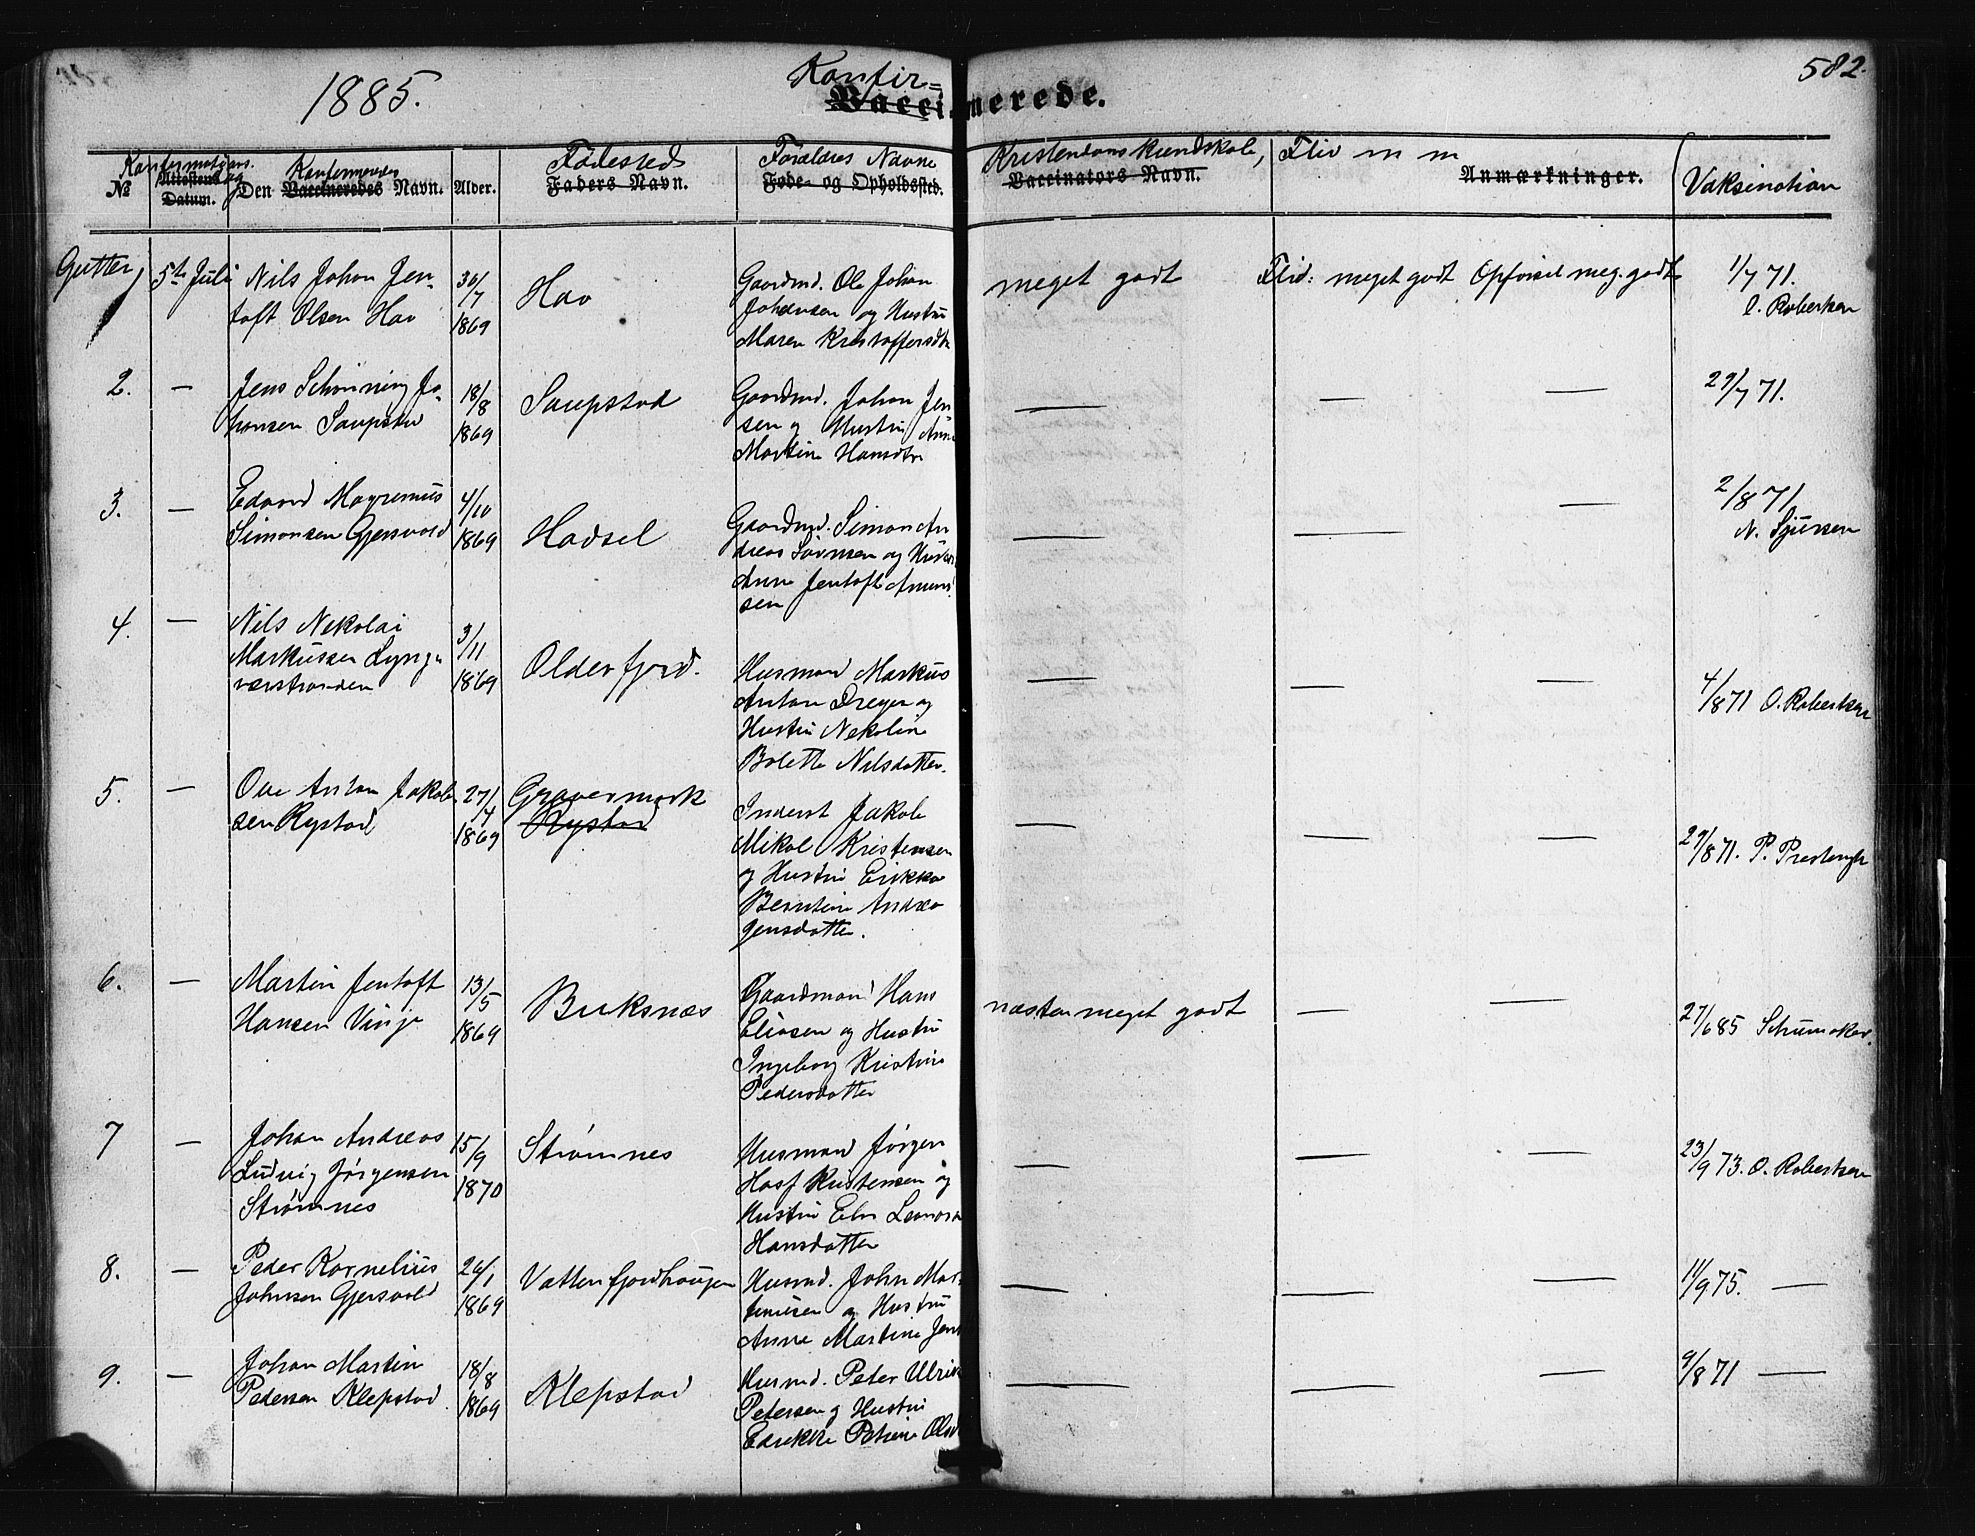 582.
1885.
Konfir=
Vaccinerede.
Konfirmations
No Attestens Datum. og
Konfirmeredes
Den Vaccineredes Navn.
Alder.
Fødested
Faders Navn.
Forældres Navne
Føde- og Opholdssted.
Kristendomskundskab,
Vaccinators Navn.
Flid m m
Anmærkninger.
Vaksination
Gutter,
5te Juli
Nils Johan Jen-
toft Olsen Hov
30/7
1869
Hov
Gaardmd. Ole Johan
Johansen og Hustru
Maren Kristoffersdtr
meget godt
Flid: meget godt Opførsel meg. godt
1/7 71.
O. Robertsen
2.
—
Jens Schinning Jo-
hansen Saupstad
18/8
1869
Saupstad
Gaardmd. Johan Jen
sen og Hustru Anne
Martine Hansdtr
—
—
—
29/7 71.
3.
—
Edvard Magremus
Simonsen Gjersvold
4/10
1869
Hadsel
Gaardmd. Simon An
dreas Simonsen og Hustru
Anne Jentoft
sen
—
—
—
2/8 71
N. Sjursen
4.
—
Nils Nekolai
Markussen Lyng-
værstranden
3/11
1869
Olderfjord.
Husmand Markus
Anton Dreyer og
Hustru Nekoline
Bolette Nilsdatter.
—
—
—
4/8 71 O. Robertsen
5.
—
Ove Anton Jakob-
sen Rystad
27/4
1869
Gravermark
Rystad
Inderst Jakob
Mikal Kristensen
og Hustru Erikka
Berntine Andrea
Jensdatter.
—
—
—
29/8 71. P.
6.
—
Martin Jentoft
Hansen Vinje
13/5
1869
Buksnæs
Gaardmand Hans
Eliasen og Hustru
Ingeborg Kristine
Pedersdatter
næsten meget godt
—
—
27/6 85 Schumaker.
7
—
Johan Andreas
Ludvig Jørgensen
Strømnes
15/9
1870
Strømnes
Husmand Jørgen
Hosf Kristensen og
Hustru Elen Leonora
Hansdatter
—
—
—
23/9 73. O. Robertsen
8.
—
Peder Kornelius
Johnsen Gjersvold
1869
Vattenfjordhaugen
Husmd. John Mar-
tinusen og Hustru
Anne Martine Jens
—
—
—
11/9 75. —
9.
—
Johan Martin
Pedersen Klepstad
18/8
1869
Klepstad
Husmd. Peter Ulrik
Petersen og Hustru
Edrikke Petrine Olsd
—
—
—
9/8 71 —